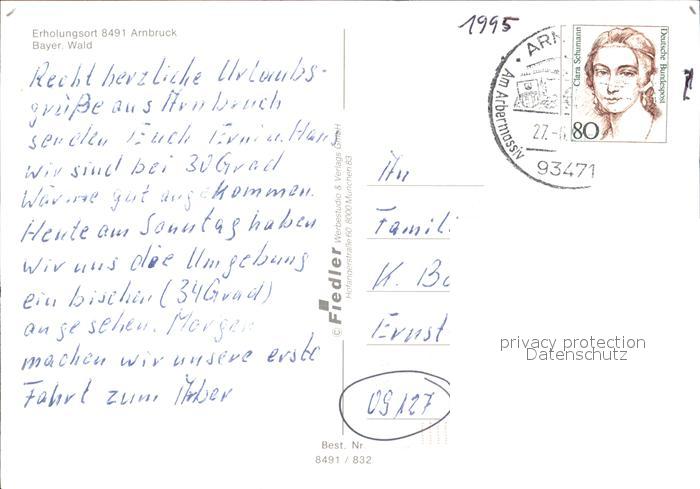 Erholungsort 8491 Arnbruck
Bayer. Wald
Recht herzliche Urlaubs-
grüße aus Arnbruch
senden Euch Erni u. Hans
wir sind bei 30 Grad
Wärme gut angekommen.
Heute am Sonntag haben
wir uns die Umgebung
ein bischen (34 Grad)
angesehen. Morgen
machen wir unsere erste
Fahrt zum Arber
© Fiedler Werbestudio & Verlags GmbH
Hofangerstraße 60, 8000 München 83
1995
ARN
Am Arbermassiv
27.-6
93471
Clara Schumann
Deutsche Bundespost
80
An
Famili
K. Bo
Ernst
09127
privacy protection
Datenschutz
Best. Nr.
8491 / 832